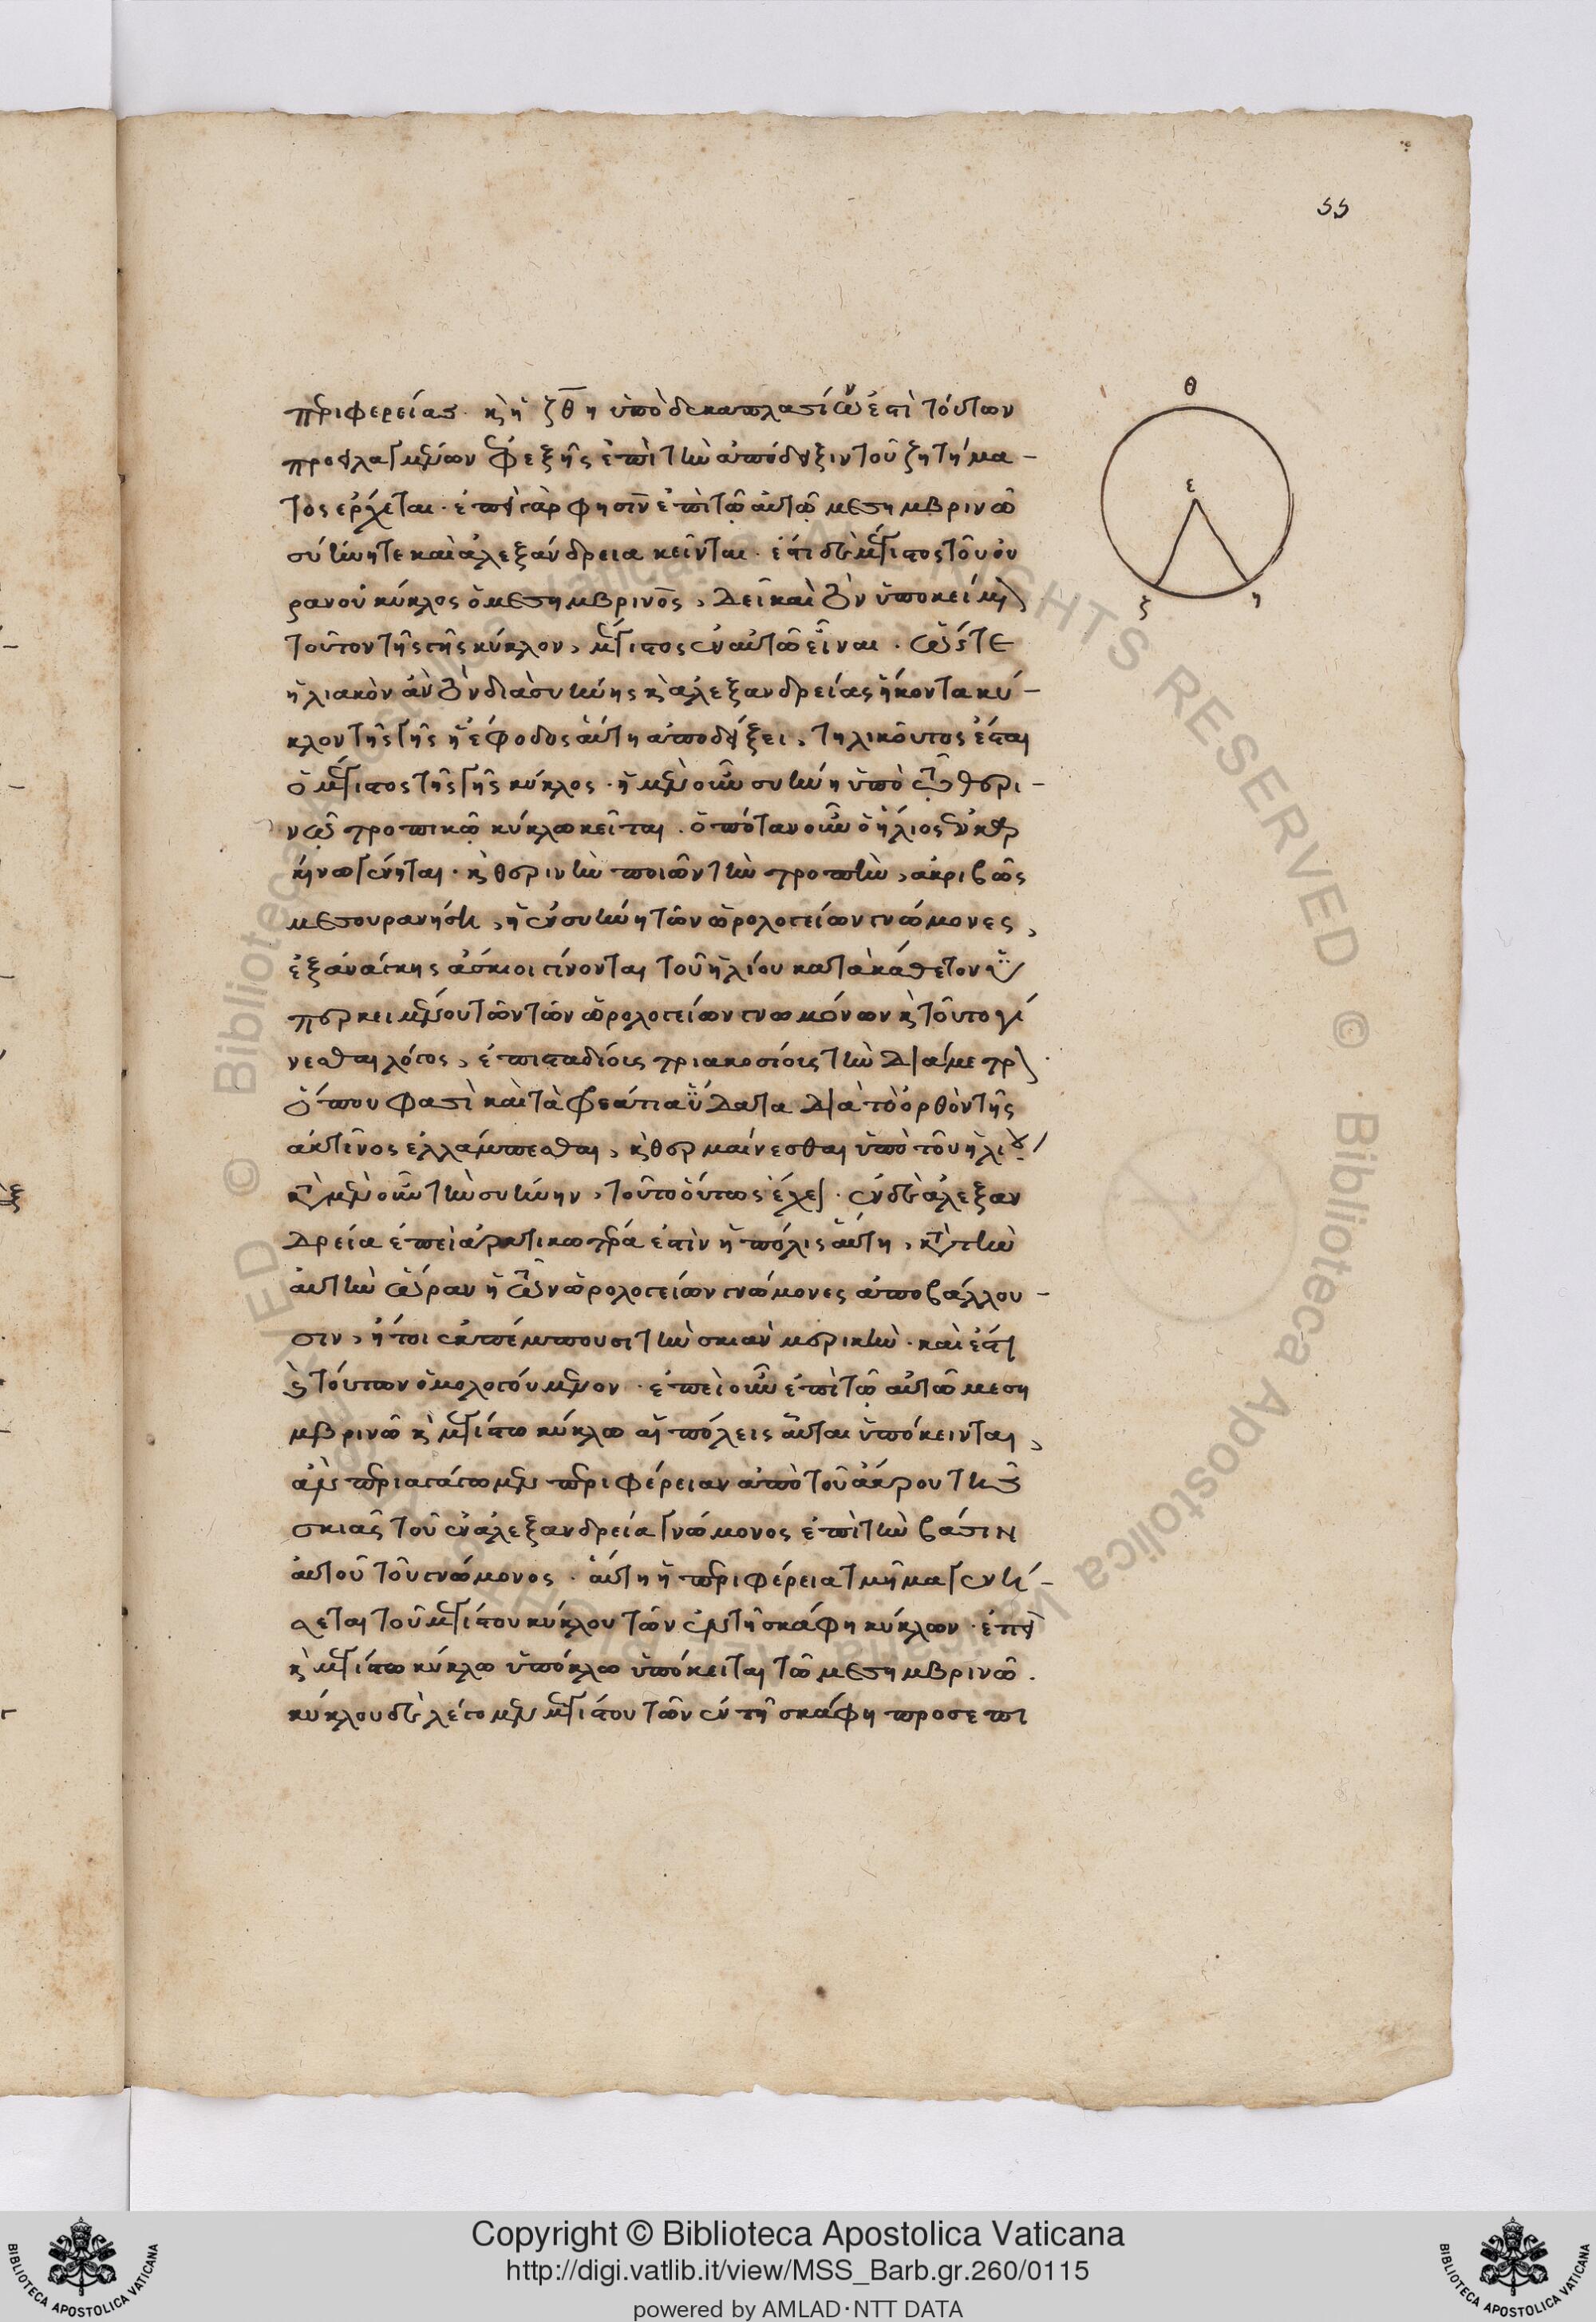 55
περιφερείας. κὴ ἡ ζθη ὑποδεκαπλασίων ἐστὶ τούτων
προειλημμένων ἐφεξῆς ἐπὶ τὴν ἀπόδειξιν τοῦ ζητήμα-
τος ἔρχεται. ἐπεὶ γάρ φησιν ἐπὶ τῷ αὐτῷ μεσημβρινῷ
συήνη τε καὶ ἀλεξάνδρεια κεῖνται. ἐστὶ δὲ μέγιστος τοῦ οὐ
ρανοῦ κύκλος ὁ μεσημβρινός, δεῖ καὶ τὸν ὑποκείμενον
τοῦτον τῆς γῆς κύκλον, μέγιστος ἐν αὐτῷ εἶναι. ὥστε
ἡλιακὸν ἂν τὸν διὰ συήνης καὶ ἀλεξανδρείας ἥκοντα κύ-
κλον τῆς γῆς ἡ ἔφοδος αὕτη ἀποδείξει, τηλικοῦτος ἔσται
ὁ μέγιστος τῆς γῆς κύκλος. ἡ μὲν οὖν συήνη ὑπὸ τῷ θερι-
νῷ τροπικῷ κύκλῳ κεῖται. ὁπόταν οὖν ὁ ἥλιος ἐν καρ
κίνῳ γένηται. καὶ θερινὴν ποιῶν τὴν τροπὴν, ἀκριβῶς
μεσουρανήσῃ, ἡ ἐν συήνη τῶν ὡρολογείων γνώμονες,
ἐξ ἀνάγκης ἄσκιοι γίνονται τοῦ ἡλίου κατὰ κάθετον ὑ
περκειμένου τῶν τῶν ὡρολογείων γνωμόνων καὶ τοῦτο γί
νεσθαι λόγος, ἐπὶ σταδίοις τριακοσίοις τὴν διάμετρον.
ὅπου φασὶ καὶ τὰ φρεάτια ὕδατα διὰ τὸ ὀρθὸν τῆς
ἀκτῖνος ἐλλάμπεσθαι, καὶ θερμαίνεσθαι ὑπὸ τοῦ ἡλίου
κατὰ μὲν οὖν τὴν συήνην, τοῦτο οὕτως ἔχει. ἐν δὲ ἀλεξαν
δρεία ἐπεὶ ἀρκτικωτέρα ἐστὶν ἡ πόλις αὕτη, κατὰ τὴν
αὐτὴν ὥραν ἡ τῶν ὡρολογείων γνώμονες ἀποβάλλου-
σιν, ἤτοι ἐκπέμπουσι τὴν σκιὰν μερικὴν. καὶ ἔστι
καὶ τούτων ὁμολογούμενον. ἐπεὶ οὖν ἐπὶ τῷ αὐτῷ μεση
μβρινῷ καὶ μεγίστῳ κύκλῳ αἱ πόλεις αὗται ὑπόκεινται,
ἂν περιαγάγωμεν περιφέρειαν ἀπὸ τοῦ ἄκρου τῆς
σκιᾶς τοῦ ἐν ἀλεξανδρεία γνώμονος ἐπὶ τὴν βάσιν
αὐτοῦ τοῦ γνώμονος. αὕτη ἡ περιφέρεια τμῆμα γενή-
σεται τοῦ μεγίστου κύκλου τῶν ἐν τῇ σκάφη κύκλων. ἐπεὶ
καὶ μεγίστῳ κύκλῳ ὑπόκλω ὑπόκειται τῷ μεσημβρινῷ.
κύκλου δὲ λέγομεν μεγίστου τῶν ἐν τῇ σκάφη προσεπι
θ
ε
ζ
η
Copyright © Biblioteca Apostolica Vaticana
http://digi.vatlib.it/view/MSS_Barb.gr.260/0115
powered by AMLAD·NTT DATA